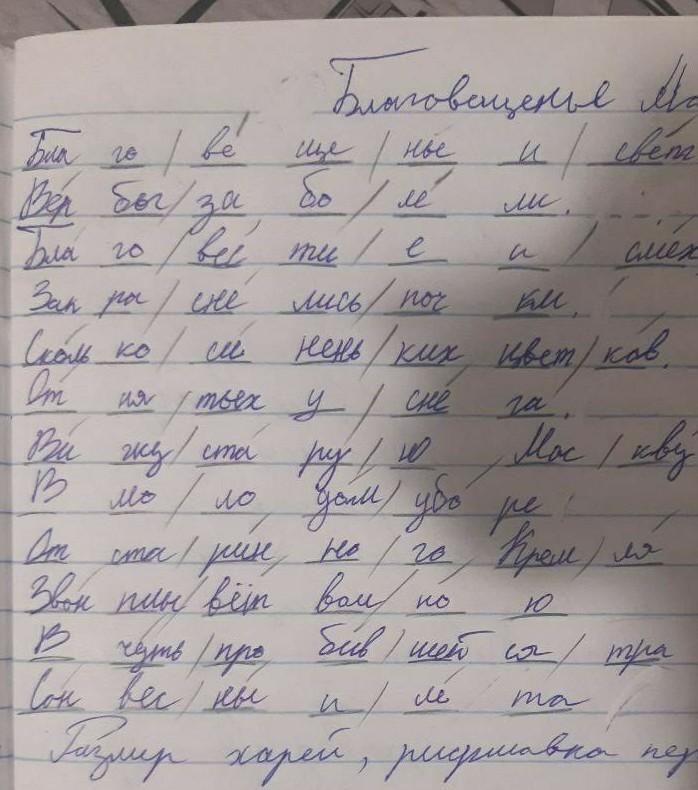 Благовещенье Мо
Бла го / ве ще / нье и / свет
Вер бы / за бо / ле ли.
Бла го / вес ти / е и / смех
Зак ра / сне лись / поч ки.
Сколь ко / си нень / ких цвет / ков.
От ня / тых у / сне га.
Ви жу / ста ру / ю Мос / кву
В мо / ло дом / убо ре
От ста / рин но / го Крем / ля
Звон плы / вёт вол / но ю
В чуть / про бив / шей ся / тра
Сон вес / ны и / ле та
Размер харей, рифмавка пер